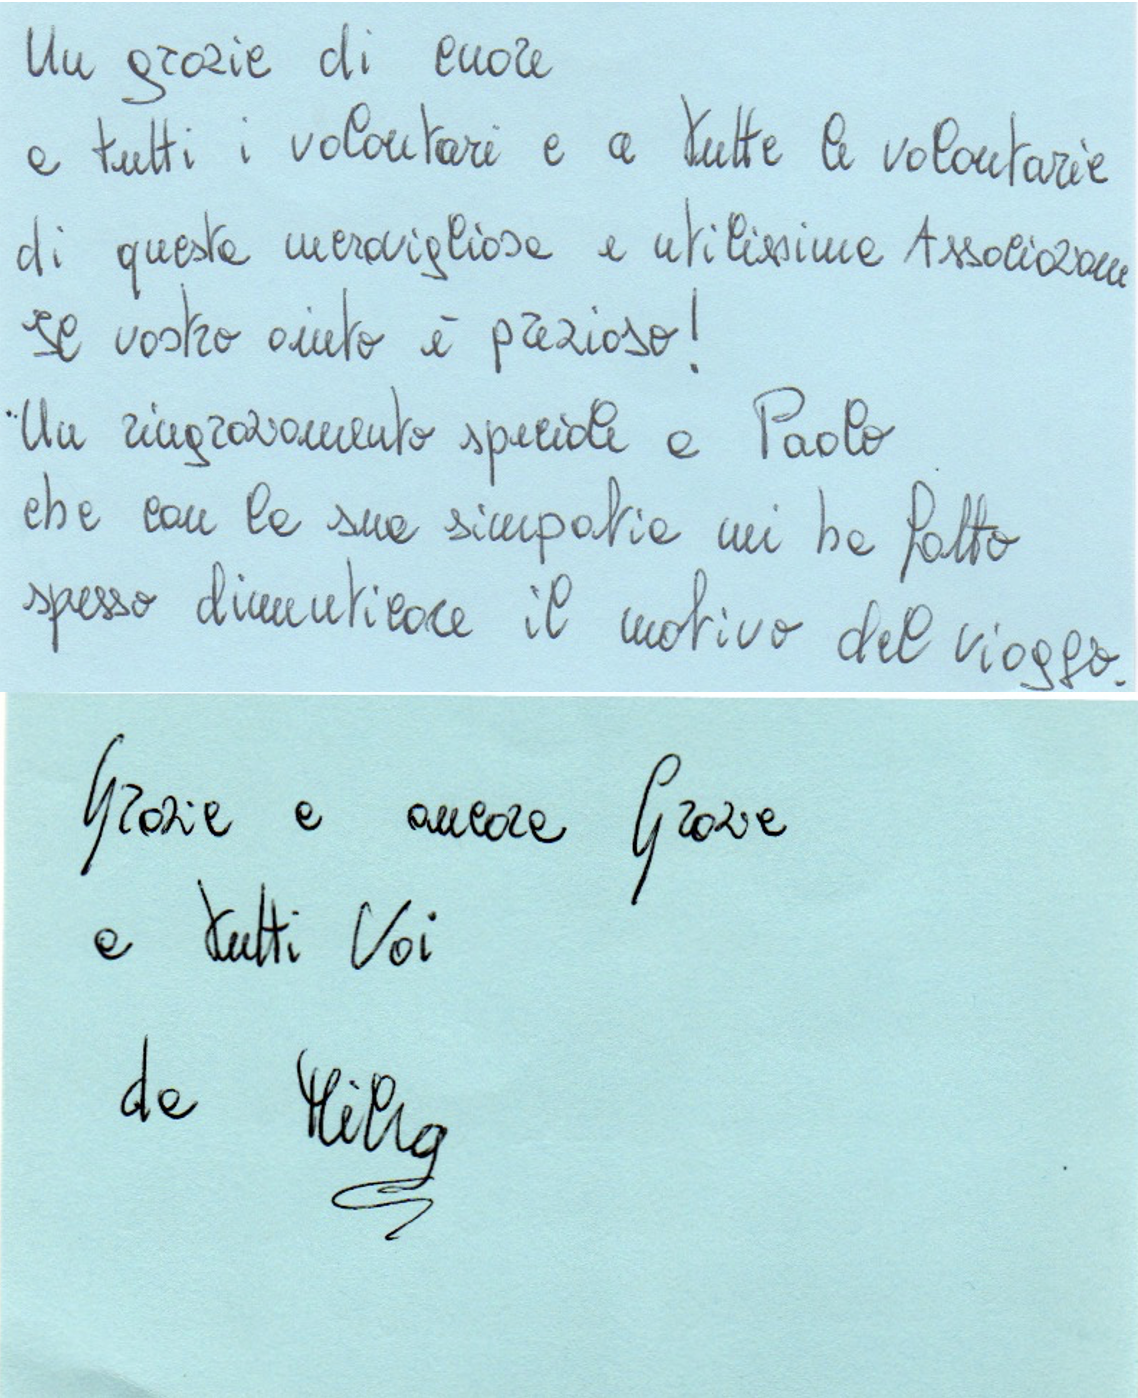 Un grazie di cuore
a tutti i volontari e a tutte le volontarie
di questa meravigliosa e utilissima Associazione
Il vostro aiuto è prezioso!
Un ringraziamento speciale a Paolo
che con la sua simpatia mi ha fatto
spesso dimenticare il motivo del viaggio.
Grazie e ancora Grazie
a tutti Voi
da